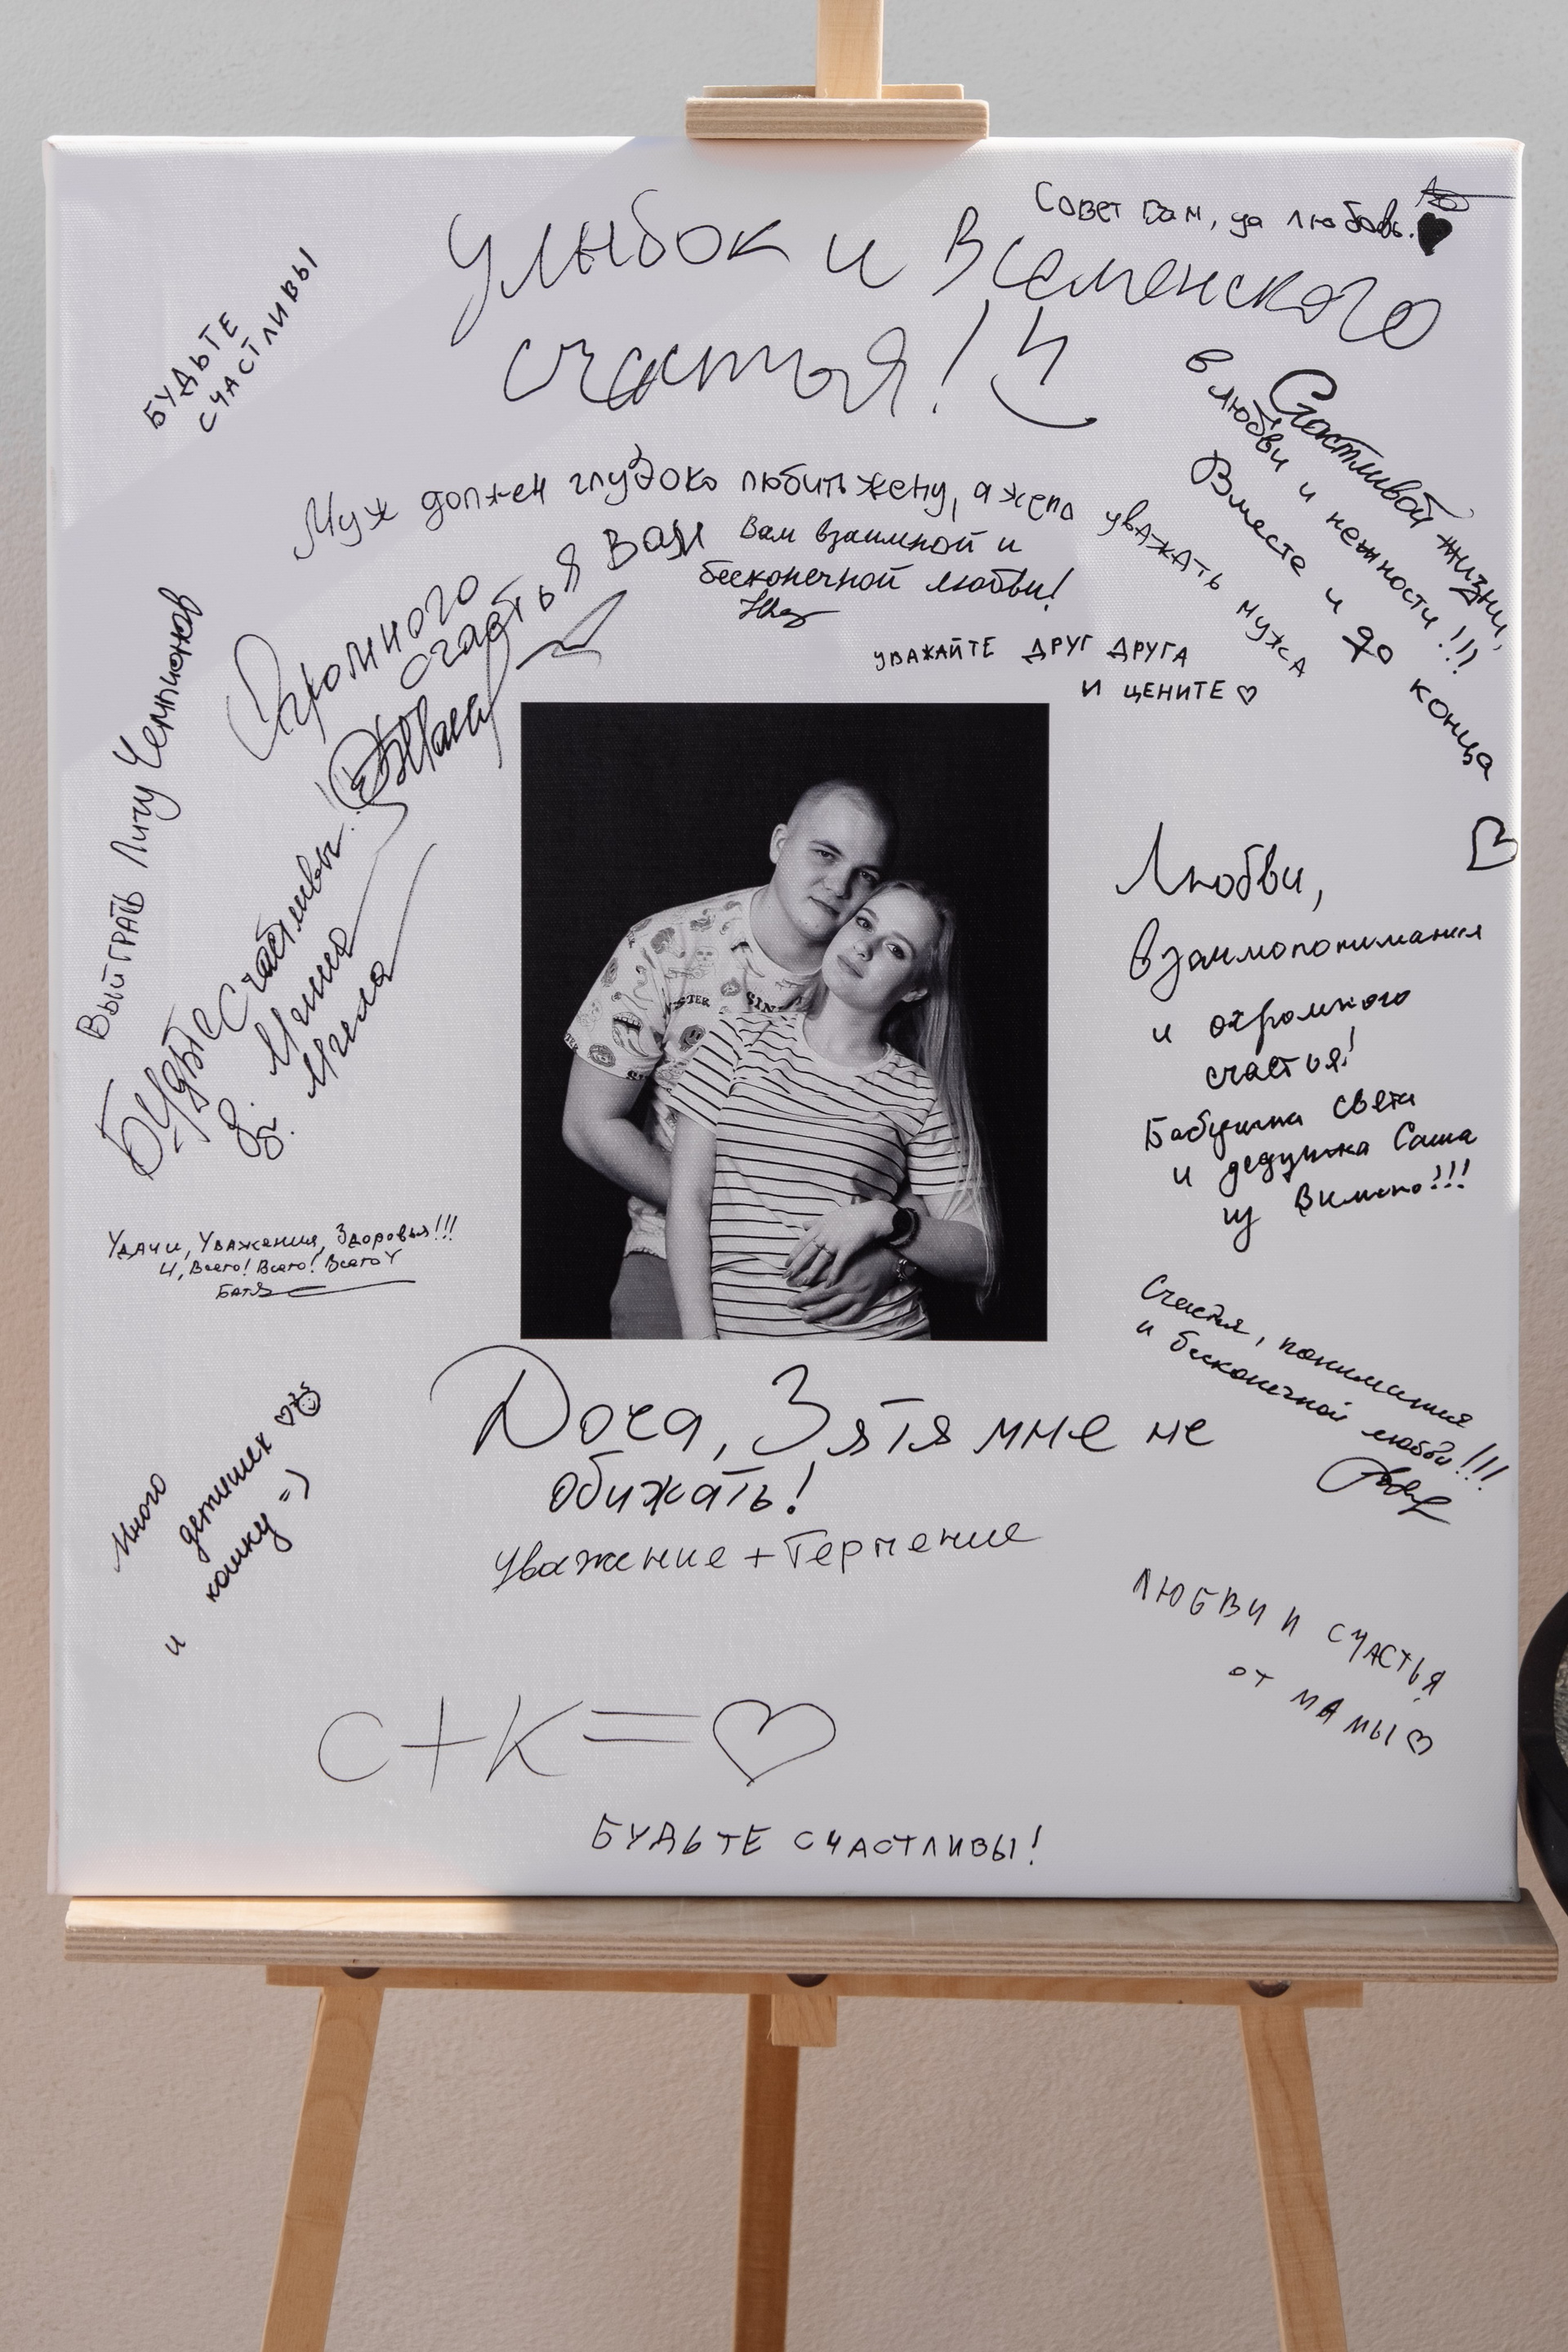 Совет Вам, да любовь.
Улыбок и Вселенского
счастья!
БУДЬТЕ
СЧАСТЛИВЫ
Счастливой жизни,
в любви и нежности!!!
Вместе и до конца
Муж должен глубоко любить жену, а жена уважать мужа
Вам взаимной и
бесконечной любви!
Огромного
счастья Вам
УВАЖАЙТЕ ДРУГ ДРУГА
И ЦЕНИТЕ
Выйграть Лигу Чемпионов
Будьте счастливы.
Любви,
взаимопонимания
и огромного
счастья!
Бабушка Света
и дедушка Саша
из Вильно!!!
Удачи, Уважения, Здоровья!!!
И, Всего! Всего! Всего
Батя
Счастья, понимания
и бесконечной любви!!!
Доча, Зятя мне не
обижать!
Уважение + Терпение
Много
детишек
и кошку =)
ЛЮБВИ И СЧАСТЬЯ
ОТ МАМЫ
С+К=
БУДЬТЕ СЧАСТЛИВЫ!